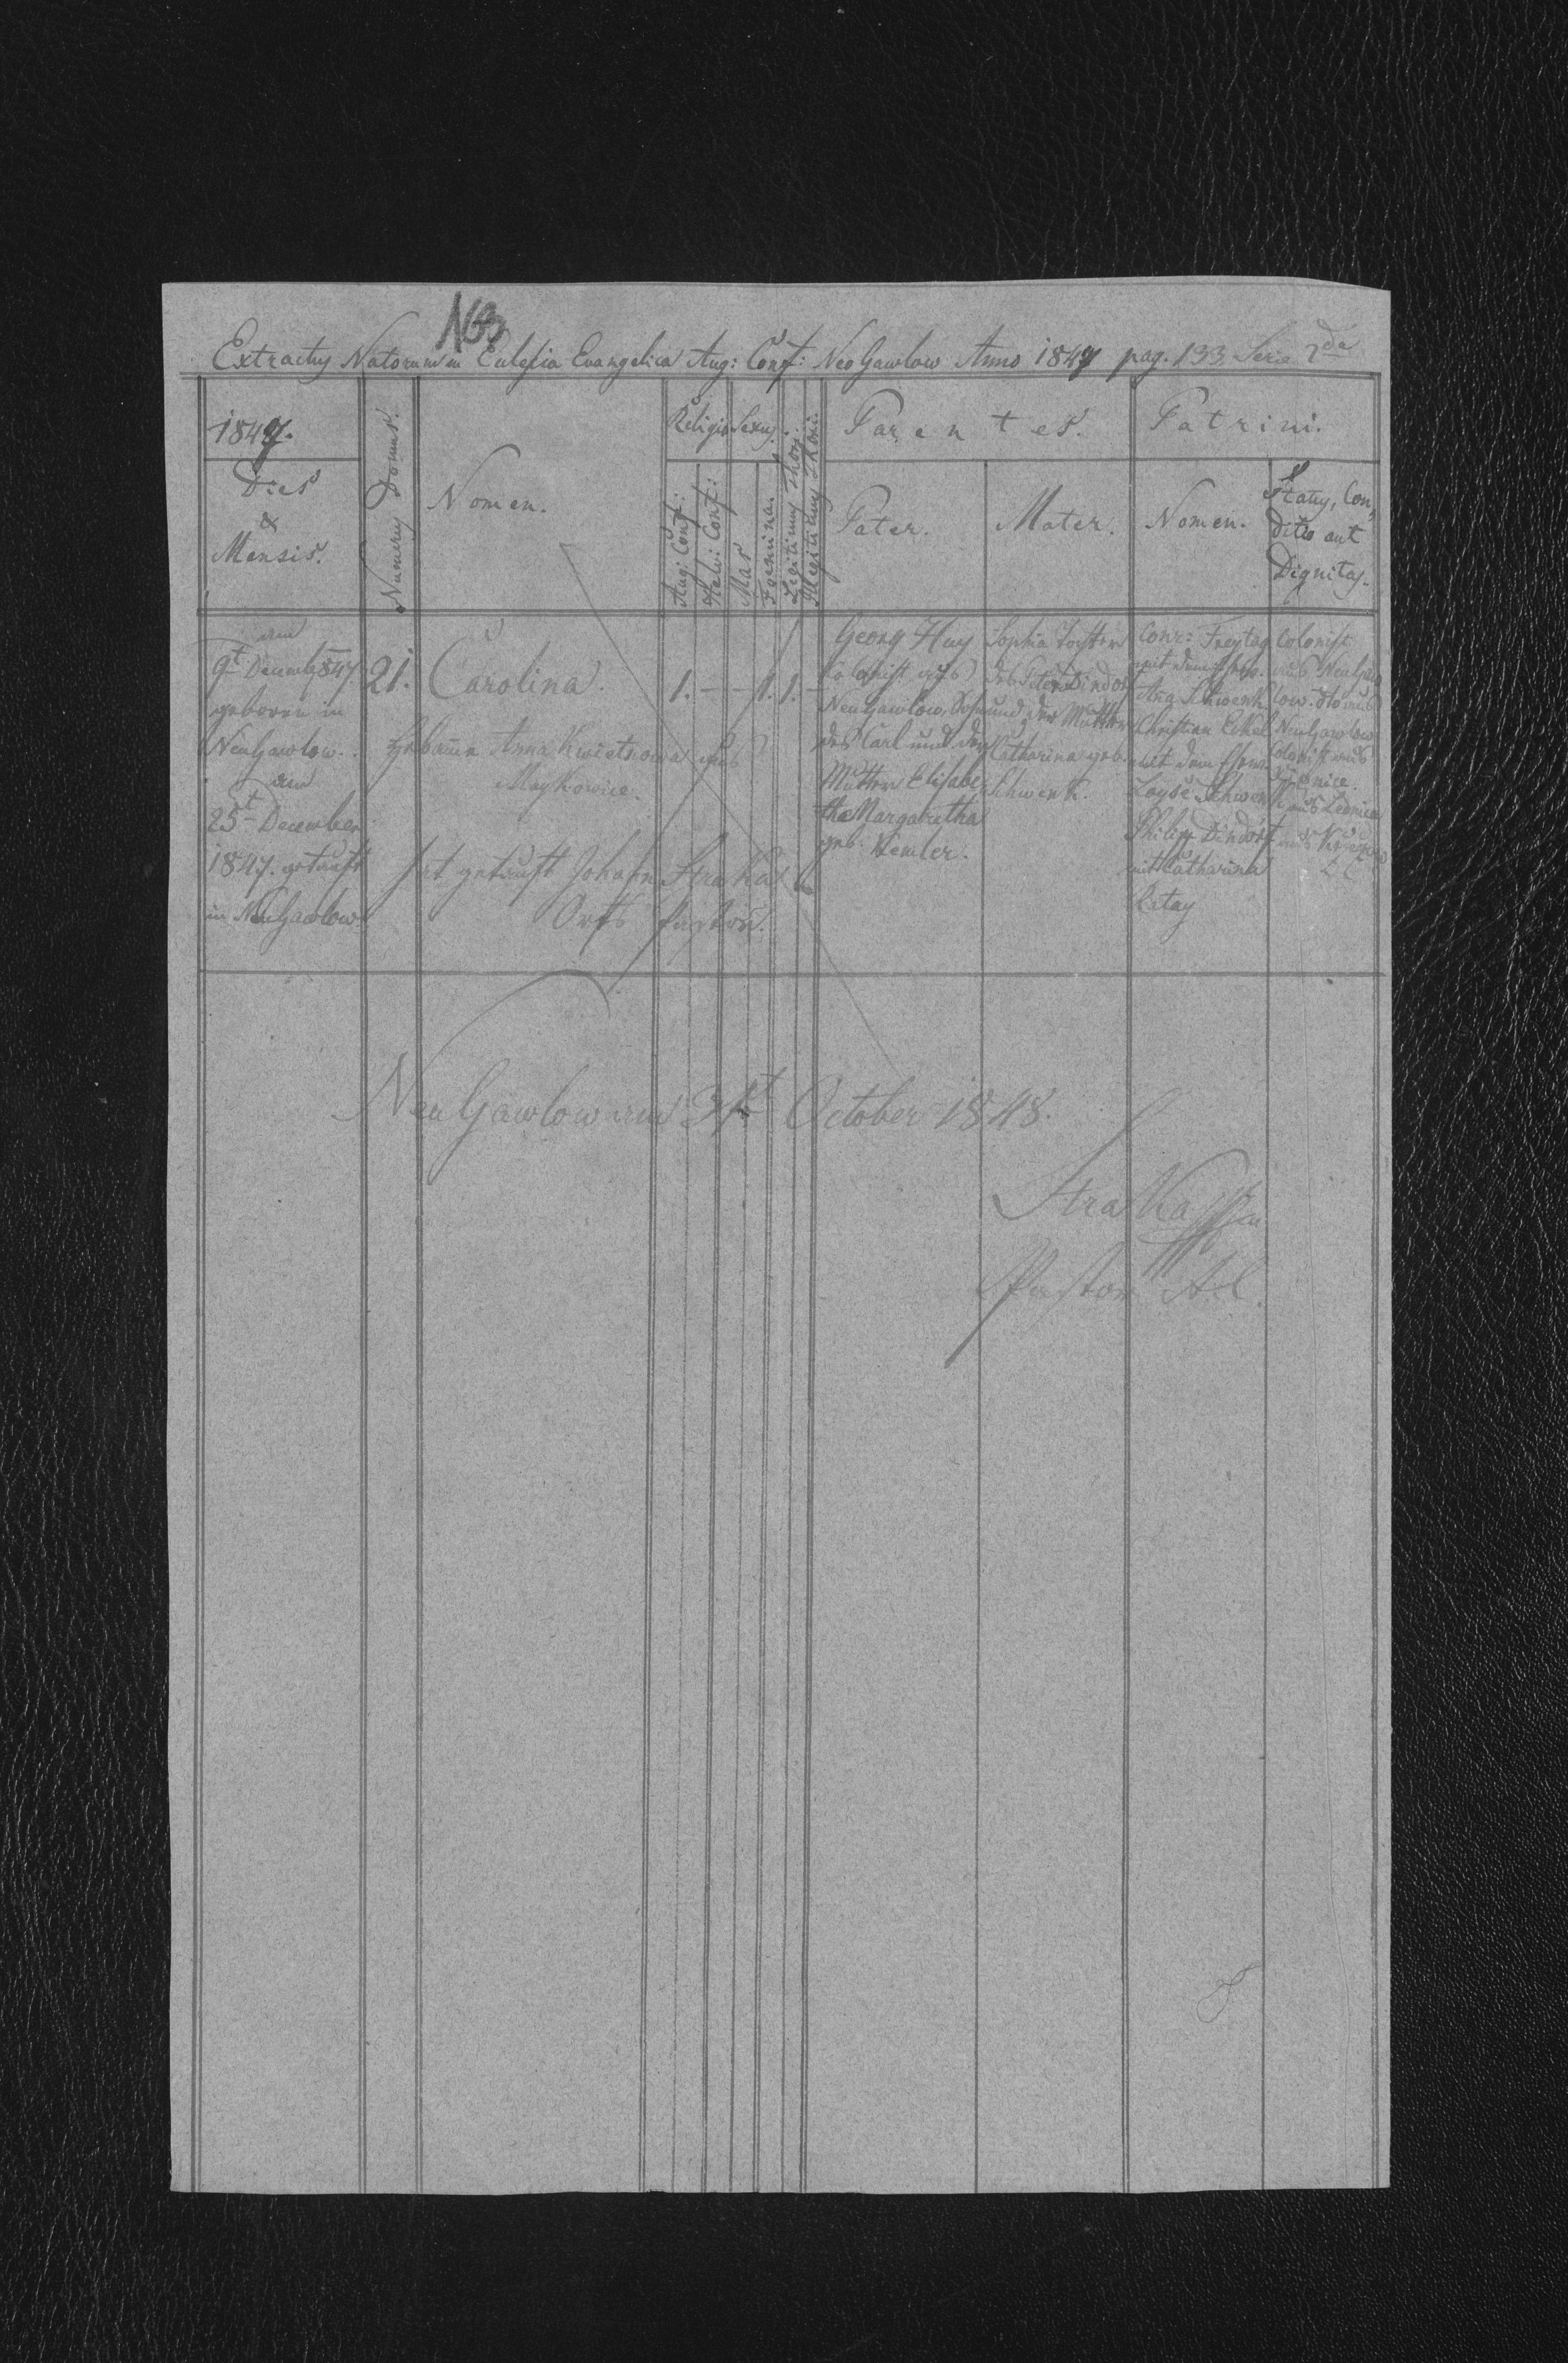 N63
Extractus Natorum in Eclesia Evangelica Aug: Conf: NeoGawlow Anno 1847 pag. 133 Serie 2da
1847.
Dies
&
Mensis.
Numerus Domus.
Nomen.
Religio
Aug: Conf:
Helv: Conf:
Sexus.
Mas
Foemina.
Legitimus Thori.
Illegitimus Thori.
Parentes.
Pater.
Mater.
Patrini.
Nomen.
Status, Con,
ditio aut
Dignitas.
am
9t December 1847
geboren in
NeuGawlow.
am
25t December
1847. getauft
in NeuGawlow.
21.
Carolina.
Hebamme Anna Kwietsowa aus
Maykowice.
hat getauft Johann Straka
Orts Pastor.
1. - - 1. 1. -
Georg Huy
Colonist aus
NeuGawlow, Sohn
des Carl und der
Mutter Elisabe,
tha Margaretha
geb. Kemler.
Sophia Tochter
des Peter Dindorf
und der Mutter
Catharina geb.
Schwenk.
Conr: Freytag
mit dem
Schwenk
Christian Eckel
mit dem
Loyse Schwenk
Philipp Dindorf
mit Catharina
Retay
Colonist
aus NeuGaw
low.
NeuGawlow
Colonist aus
aus
aus
NeuGawlow am 31t October 1848.
Straka
Pastor A.C.